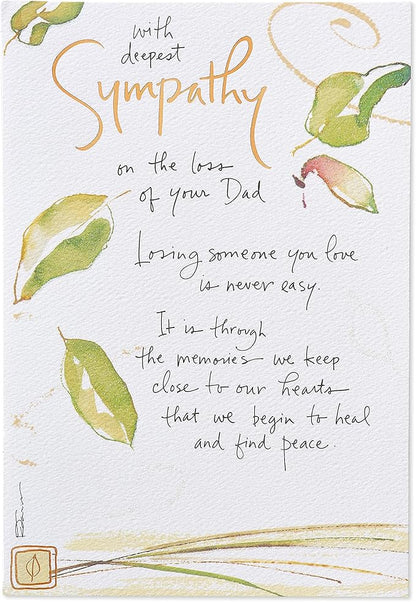 with
deepest
Sympathy
on the loss
of your Dad
Losing someone you love
is never easy.
It is through
the memories we keep
close to our hearts
that we begin to heal
and find peace.